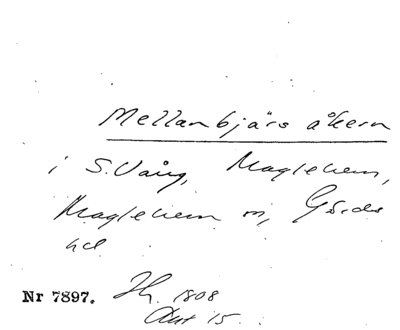 Mellanbjärs åkern
i S. Vång, Maglehem,
Maglehem sn, Gärds
hd
Nr 7897. 1808
Akt 15.